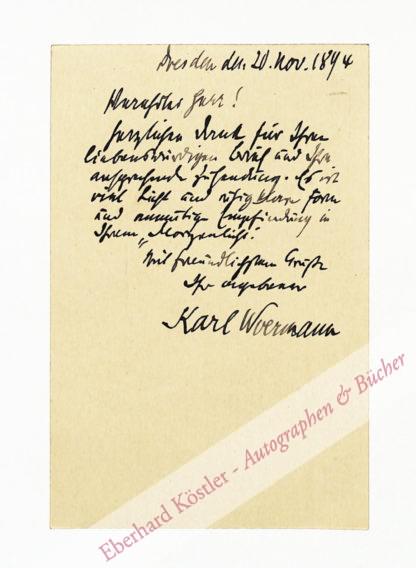 Dresden den 20. Nov. 1894
Verehrter Herr!
Herzlichen Dank für Ihren
liebenswürdigen Brief und Ihre
ansprechende Zusendung. Es ist
viel Licht und ruhig klare Form
und anmutige Empfindung in
Ihrem „Morgenlicht".
Mit freundlichstem Gruße
Ihr ergebener
Karl Woermann
Eberhard Köstler - Autographen & Bücher